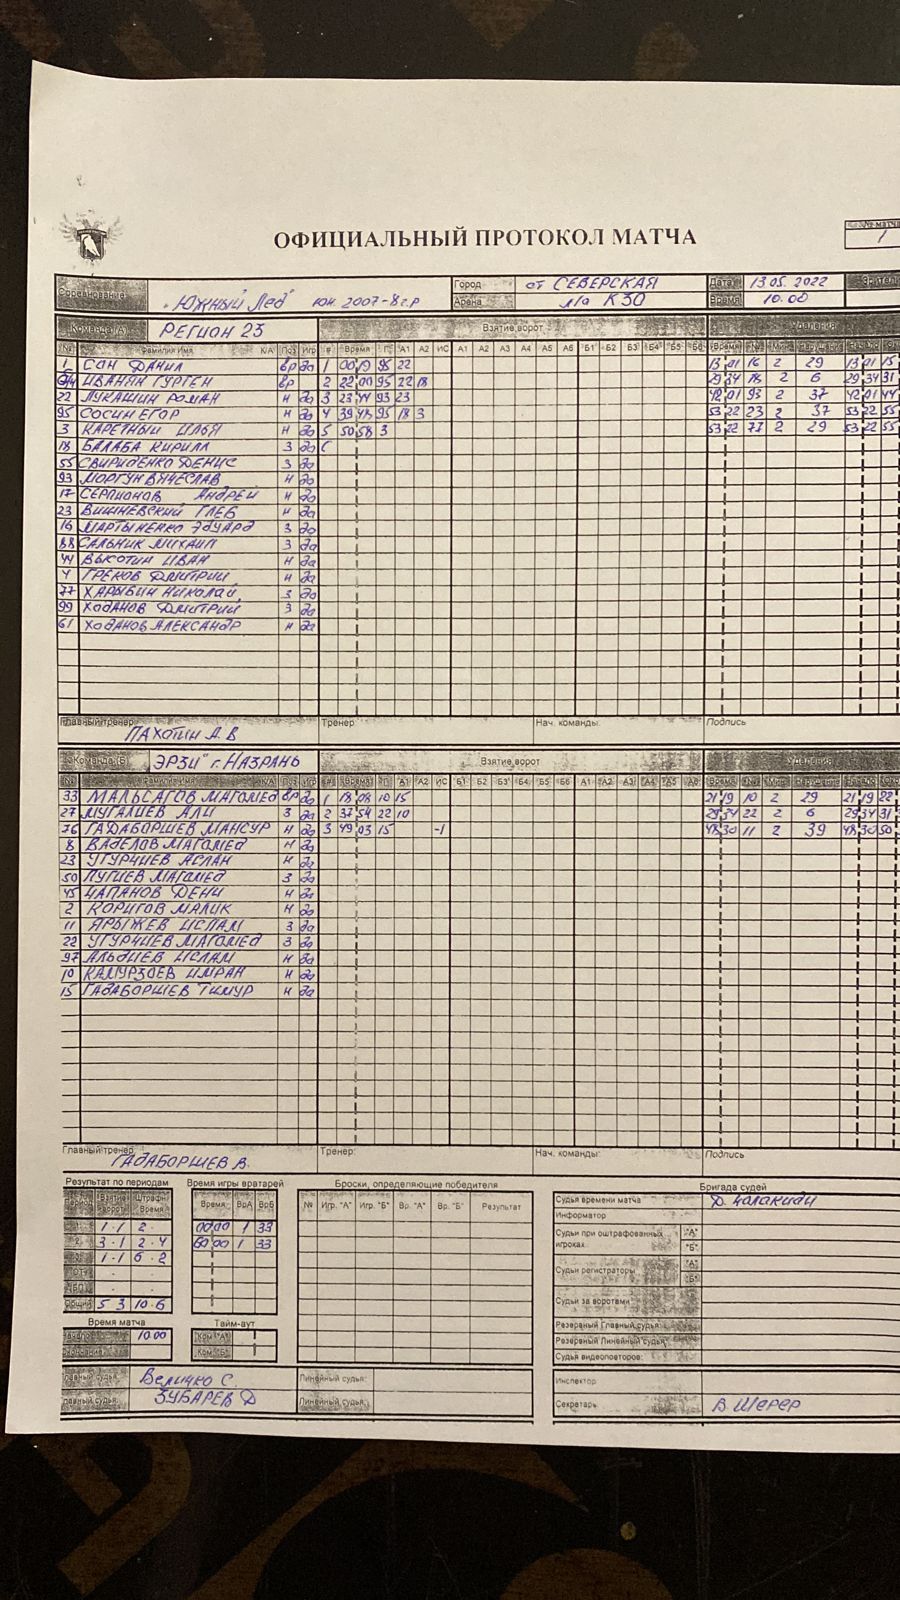 ОФИЦИАЛЬНЫЙ ПРОТОКОЛ МАТЧА
№ матча 1
Соревнование "Южный Лед" юн. 2007-8 г.р Город ст СЕВЕРСКАЯ Дата 13.05.2022
Арена л/а К30 Время 10.00
Команда (А) РЕГИОН 23 Взятие ворот Удаления
№ Фамилия Имя К/А Поз Игр # Время Г А1 А2 ИС А1 А2 А3 А4 А5 А6 Б1 Б2 Б3 Б4 Б5 Б6 Время №
1 САН ДАНИЛ вр да 1 00 19 95 22 13 01 16 2 29 13 01 15
ИВАНЯН ГУРГЕН вр 2 22 00 95 22 18 29 34 18 2 6 29 34 31
22 ЛУКАШИН РОМАН Н да 3 23 44 93 23 42 01 93 2 37 42 01 44
95 СОСИН ЕГОР Н да 4 39 48 95 18 3 53 22 23 2 37 53 22 55
3 КАРЕТНЫЙ ИЛЬЯ Н да 5 50 58 3 53 22 77 2 29 53 22 55
18 БАЛАБА КИРИЛЛ З да
55 СВИРИДЕНКО ДЕНИС З да
93 МОРГУН ВЯЧЕСЛАВ Н да
17 СЕРПИОНОВ АНДРЕЙ Н да
23 ВИШНЕВСКИЙ ГЛЕБ Н да
16 МАРТЫНЕНКО ЭДУАРД З да
88 САЛЬНИК МИХАИЛ З да
44 ВЫСОТИН ИВАН Н да
4 ГРЕКОВ ДМИТРИЙ Н да
77 ХАРЫБИН НИКОЛАЙ З да
99 ХОДАНОВ ДМИТРИЙ З да
61 ХОДАНОВ АЛЕКСАНДР Н да
Главный тренер ПАХОТИН А.В Тренер Нач. команды: Подпись
Команда (Б) "ЭРЗИ" г. НАЗРАНЬ Взятие ворот Удаления
№ Фамилия Имя К/А Поз Игр # Время Г А1 А2 ИС Б1 Б2 Б3 Б4 Б5 Б6 А1 А2 А3 А4 А5 А6 Время №
33 МАЛЬСАГОВ МАГОМЕД вр да 1 18 08 10 15 21 19 10 2 29 21 19 22
27 МУГАЛИЕВ АЛИ З да 2 37 54 22 10 29 34 22 2 6 29 34 31
76 ГАДАБОРШЕВ МАНСУР Н да 3 49 03 15 -1 48 30 11 2 39 48 30 50
8 ВАДЕЛОВ МАГОМЕД Н да
23 УГУРЧИЕВ АСЛАН Н да
50 ЛУГИЕВ МАГОМЕД З да
45 ЦАПАНОВ ДЕНИ Н да
2 КОРИГОВ МАЛИК Н да
11 ЯРЫЖЕВ ИСЛАМ З да
22 УГУРЧИЕВ МАГОМЕД З да
97 АЛЬДИЕВ ИСЛАМ Н да
10 КАМУРЗОЕВ ИМРАН Н да
15 ГАДАБОРШЕВ ТИМУР Н да
Главный тренер ГАДАБОРШЕВ В. Тренер: Нач. команды: Подпись
Результат по периодам Время игры вратарей Броски, определяющие победителя Бригада судей
Период Взятие ворот Штрафн. Время Время ВрА ВрБ № Игр. "А" Игр. "Б" Вр. "А" Вр. "Б" Результат
1 1 · 1 2 · 00 00 1 33
2 3 · 1 2 · 4 60 00 1 33
3 1 · 1 6 · 2
Общий 5 3 10 · 6
Судья времени матча
Информатор
Судьи при оштрафованных игроках "А" "Б"
Судьи регистраторы "А" "Б"
Судьи за воротами
Резервный Главный судья:
Резервный Линейный судья:
Судья видеоповторов:
Время матча Тайм-аут
Начало 10.00 Ком "А"
Окончание Ком "Б"
Главный судья: Величко С. Линейный судья: Инспектор
Главный судья: ЗУБАРЕВ Д Линейный судья: Секретарь В. Шерер